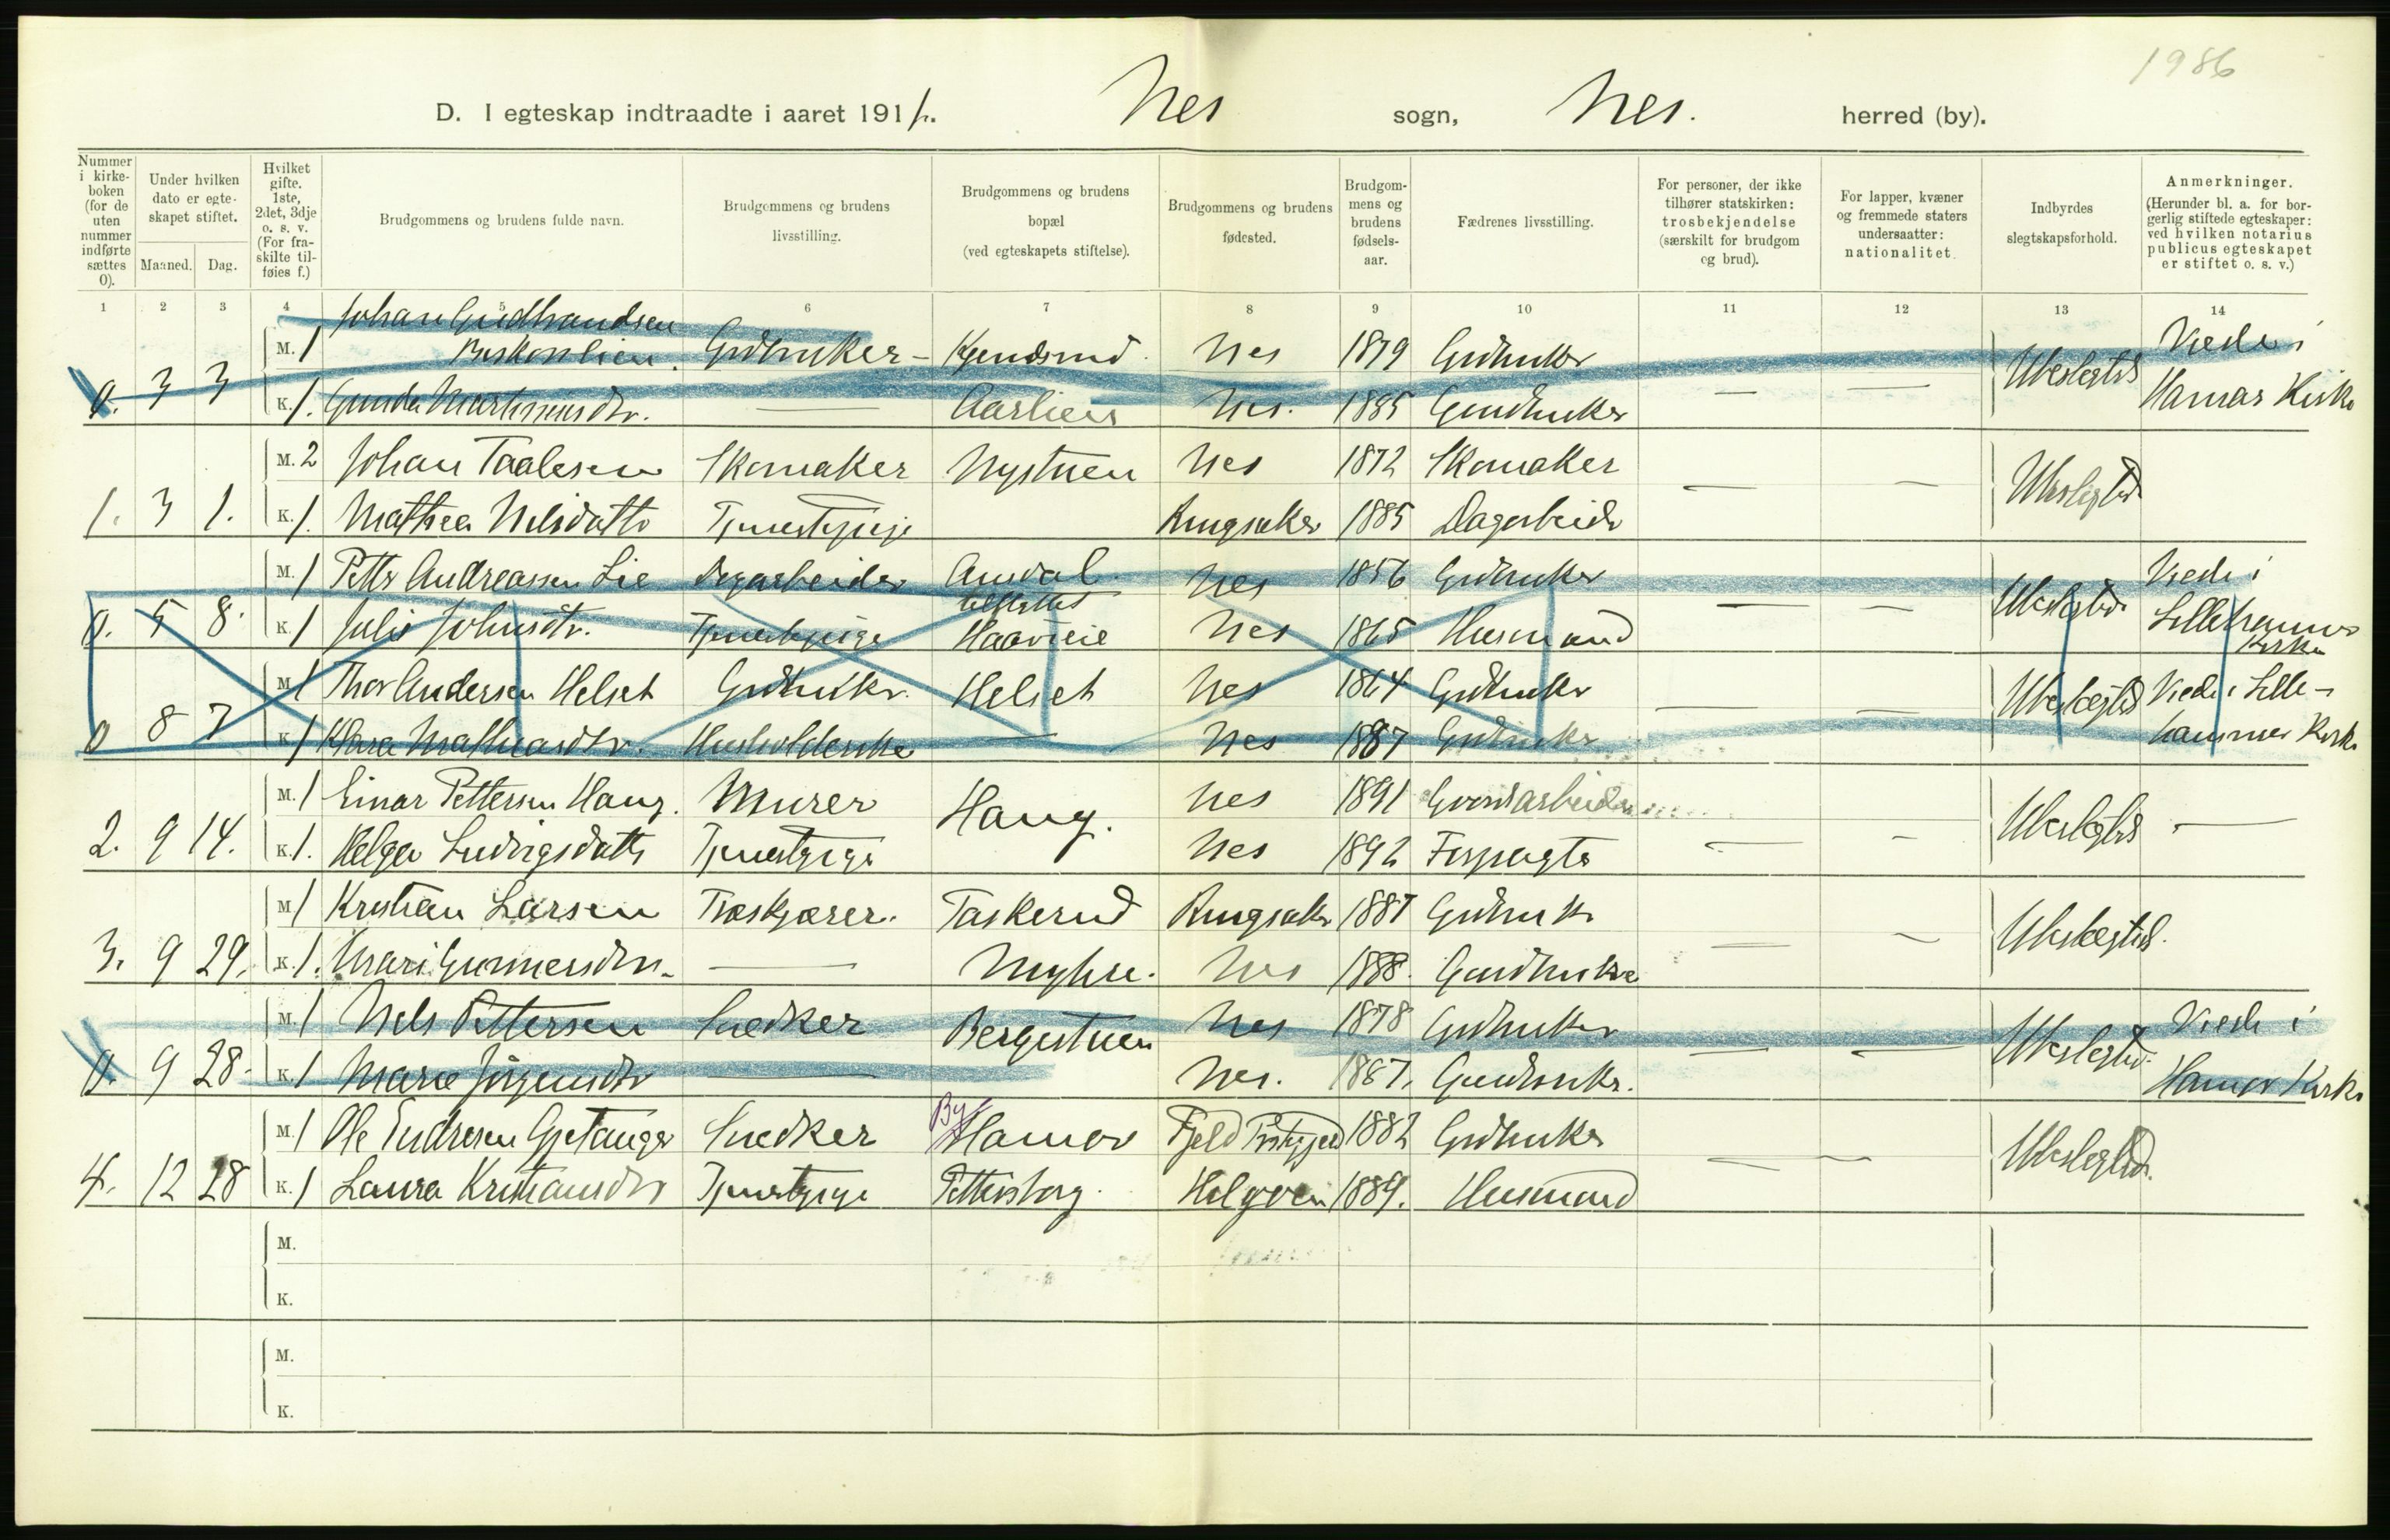 1986
D. I egteskap indtraadte i aaret 1911. Nes sogn, Nes. herred (by).
Nummer i kirke-boken (for de uten nummer indførte sættes 0).
Under hvilken dato er egte-skapet stiftet.
Maaned. Dag.
Hvilket gifte. 1ste, 2det, 3dje o. s. v. (For fra-skilte til-føies f.)
Brudgommens og brudens fulde navn.
Brudgommens og brudens livsstilling.
Brudgommens og brudens bopæl (ved egteskapets stiftelse).
Brudgommens og brudens fødested.
Brudgom-mens og brudens fødsels-aar.
Fædrenes livsstilling.
For personer, der ikke tilhører statskirken: trosbekjendelse (særskilt for brudgom og brud).
For lapper, kvæner og fremmede staters undersaatter: nationalitet.
Indbyrdes slegtskapsforhold.
Anmerkninger. (Herunder bl. a. for bor-gerlig stiftede egteskaper: ved hvilken notarius publicus egteskapet er stiftet o. s. v.)
1 2 3 4 5 6 7 8 9 10 11 12 13 14
Johan Gudbrandsen
M. 1 Grdbruker - Nes 1879 Grdbruker Viede i
0. 3 3 Ubeslegted
K. 1. Gunda Martinusdtr. — Aarlien Nes. 1885 Gardbruker — — Hamar Kirke
M. 2 Johan Taalesen Skomaker Nystuen Nes 1872 Skomaker
1. 3 1. — — Ubeslegted
K. 1. Mathea Nilsdatter Tjenestepige Ringsaker 1885 Dagarbeider
M. 1 Petter Andreassen Lie Dagarbeider Amdal Nes 1856 Grdbruker Viede i
0. 5 8. — — Ubeslegted Lillehammer
K. 1 Julie Johnsdtr. Tjenestepige Haaveie Nes 1865 Husmand Kirke
M. 1 Thor Andersen Helset Grdbruker. Helset Nes 1864 Grdbruker Viede i Lille-
0 8 7 — — Ubeslegted
K. 1 Klara Mathiasdtr. Husholderske — Nes 1887 Grdbruker hammer Kirke
M. 1 Einar Pettersen Haug. Murer Haug. Nes 1891 Gaardsarbeider
2. 9 14. — — Ubeslegted —
K. 1. Helga Ludvigsdatter Tjenestepige Nes 1892 Forpagter
M. 1 Kristian Larsen Træskjærer. Taskerud Ringsaker 1887 Grdbruker
3. 9 29. — — Ubeslegted.
K. 1. Mari Gunnersdtr. — Myhre. Nes 1888. Gardbruker
M. 1 Nils Pettersen Snedker Bergestuen Nes 1878 Grdbruker Viede i
0. 9 28. — — Ubeslegted.
K. 1 Marie Jörgensdtr — Nes. 1867. Gardbruker. Hamar Kirke
M. 1 Ole Endresen Gjetanger Snedker By Hamar Fjeld Prstegjeld 1882 Grdbruker
4. 12 28 — — Ubeslegted.
K. 1 Laura Kristiansdtr Tjenestepige Pettersborg. Helgøen 1889. Husmand
M.
K.
M.
K.